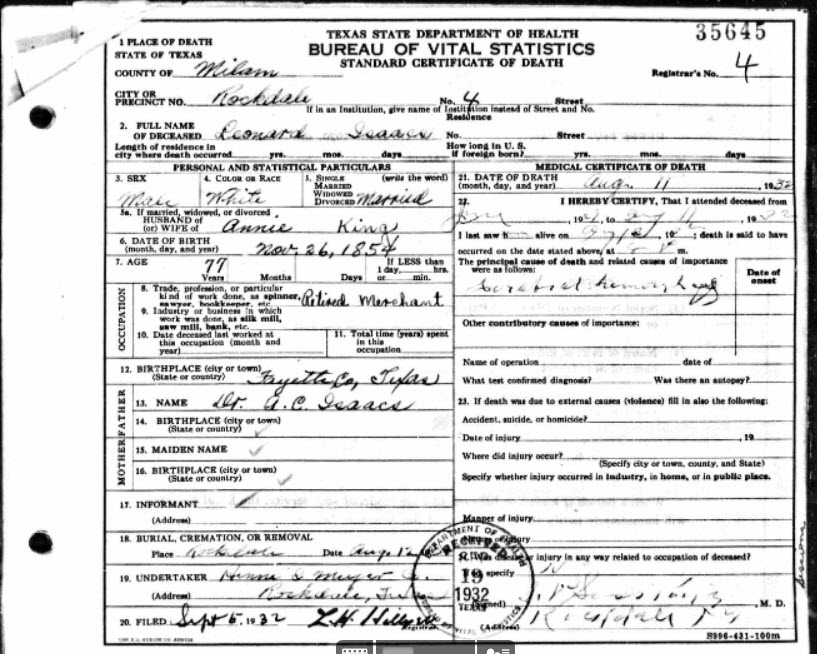 TEXAS STATE DEPARTMENT OF HEALTH
BUREAU OF VITAL STATISTICS
STANDARD CERTIFICATE OF DEATH
35645
1 PLACE OF DEATH
STATE OF TEXAS
COUNTY OF Milam
Registrar's No. 4
CITY OR
PRECINCT NO. Rockdale No. 4 Street
If in an Institution, give name of Institution instead of Street and No.
Residence
2. FULL NAME
OF DECEASED Leonard Isaacs No. Street
Length of residence in
city where death occurred yrs. mos. days
How long in U. S.
if foreign born? yrs. mos. days
PERSONAL AND STATISTICAL PARTICULARS
3. SEX
Male
4. COLOR OR RACE
White
5. SINGLE
MARRIED
WIDOWED
DIVORCED (write the word)
Married
5a. If married, widowed, or divorced
HUSBAND OF
(or) WIFE OF Annie King
6. DATE OF BIRTH
(month, day, and year) Nov. 26, 1854
7. AGE 77
Years Months Days
If LESS than
1 day, hrs.
or min.
OCCUPATION
8. Trade, profession, or particular
kind of work done, as spinner,
sawyer, bookkeeper, etc. Retired Merchant
9. Industry or business in which
work was done, as silk mill,
saw mill, bank, etc.
10. Date deceased last worked at
this occupation (month and
year)
11. Total time (years) spent
in this
occupation
12. BIRTHPLACE (city or town)
(State or country) Fayette Co, Texas
FATHER
13. NAME Dr. A. C. Isaacs
14. BIRTHPLACE (city or town)
(State or country)
MOTHER
15. MAIDEN NAME
16. BIRTHPLACE (city or town)
(State or country)
17. INFORMANT
(Address)
18. BURIAL, CREMATION, OR REMOVAL
Place Rockdale Date Aug. 12
19. UNDERTAKER Meyer
(Address) Rockdale,
20. FILED Sept 5, 1932 L. H.
Registrar.
MEDICAL CERTIFICATE OF DEATH
21. DATE OF DEATH
(month, day, and year) Aug. 11, 1932
22. I HEREBY CERTIFY, That I attended deceased from
, 19 , to 11, 1932
I last saw h alive on , 19 ; death is said to have
occurred on the date stated above, at m.
The principal cause of death and related causes of importance
were as follows:
Date of
onset
Cerebral
Other contributory causes of importance:
Name of operation date of
What test confirmed diagnosis? Was there an autopsy?
23. If death was due to external causes (violence) fill in also the following:
Accident, suicide, or homicide?
Date of injury , 19
Where did injury occur?
(Specify city or town, county, and State)
Specify whether injury occurred in industry, in home, or in public place.
Manner of injury
Nature of injury
24. Was disease or injury in any way related to occupation of deceased?
specify
(Signed) , M. D.
(Address) Rockdale
DEPARTMENT OF HEALTH
RECEIVED
19
1932
TEXAS
BUREAU OF VITAL STATISTICS
Sessions
S996-431-100m